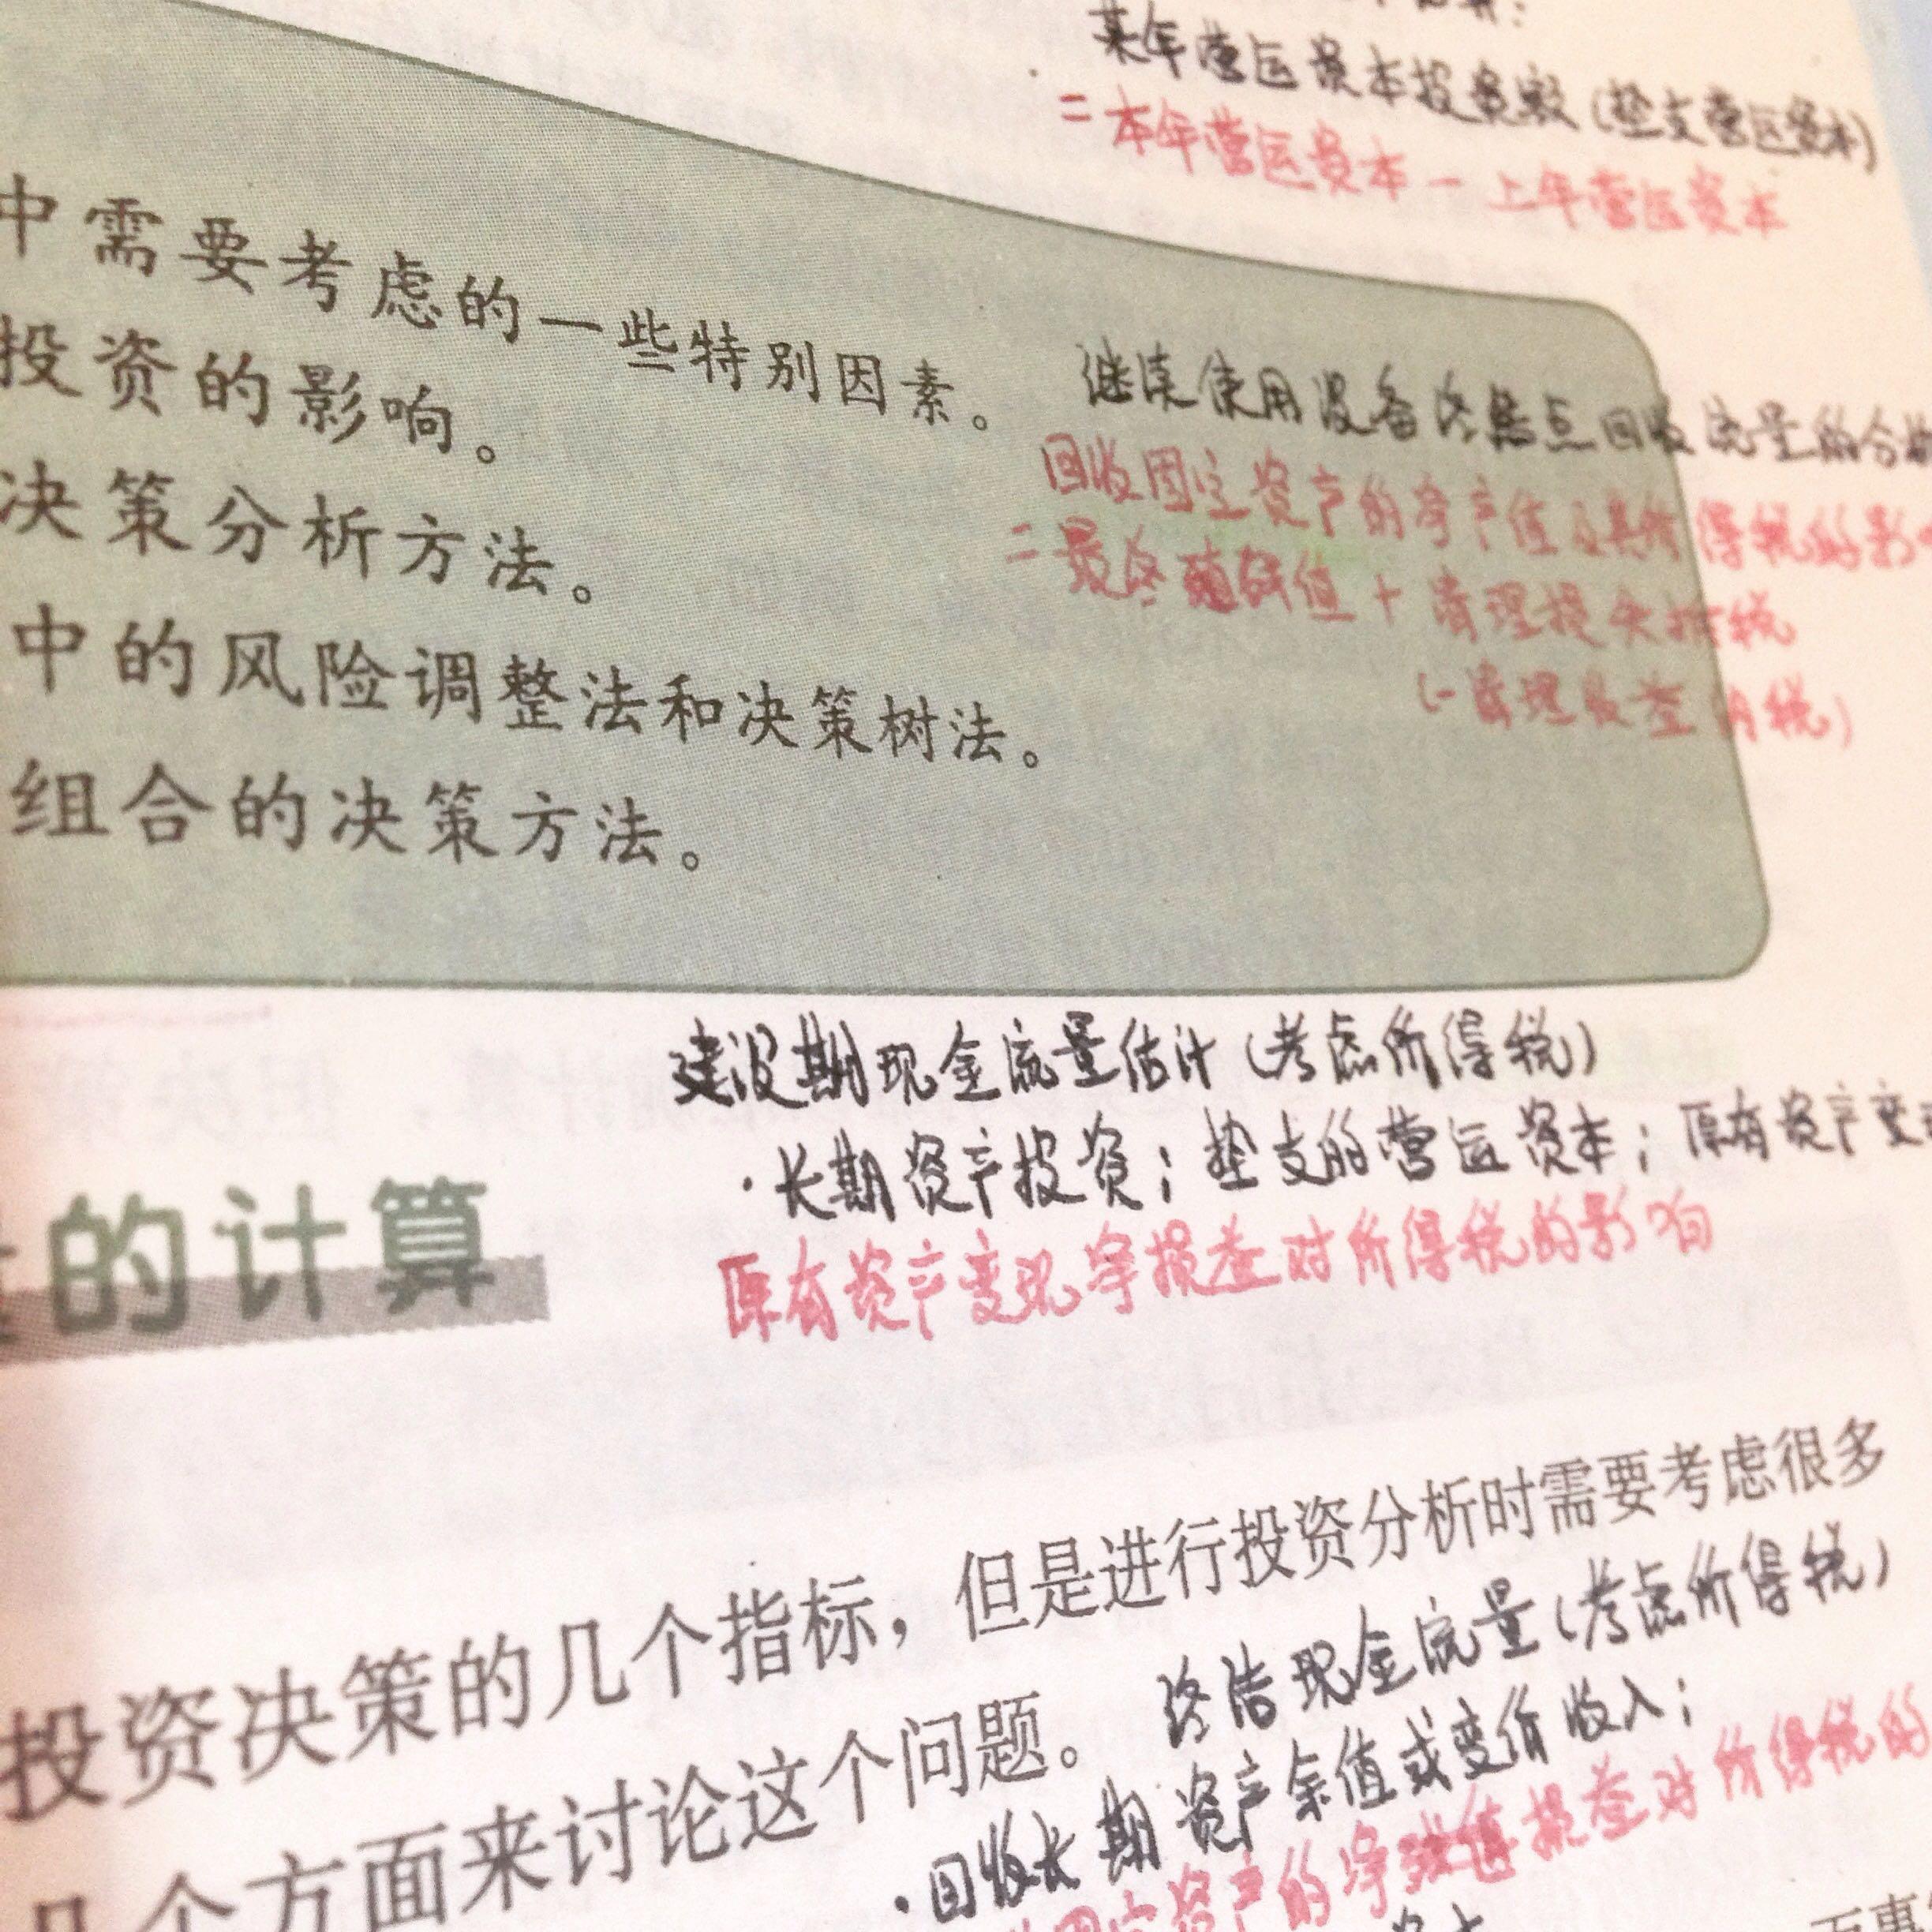 某年营运资本投资额(垫支营运资本)
=本年营运资本-上年营运资本
中需要考虑的一些特别因素。
投资的影响。
决策分析方法。
中的风险调整法和决策树法。
组合的决策方法。
继续使用设备终结点回收流量的合
回收固定资产的净产值及其所得税的影
=最终残值+清理损失抵税
(-清理收益纳税)
建设期现金流量估计(考虑所得税)
·长期资产投资;垫支的营运资本;原有资产变
原有资产变现净损益对所得税的影响
的计算
投资决策的几个指标,但是进行投资分析时需要考虑很多
几个方面来讨论这个问题。
终结现金流量(考虑所得税)
·回收长期资产余值或变价收入;
固定资产的净残值损益对所得税的